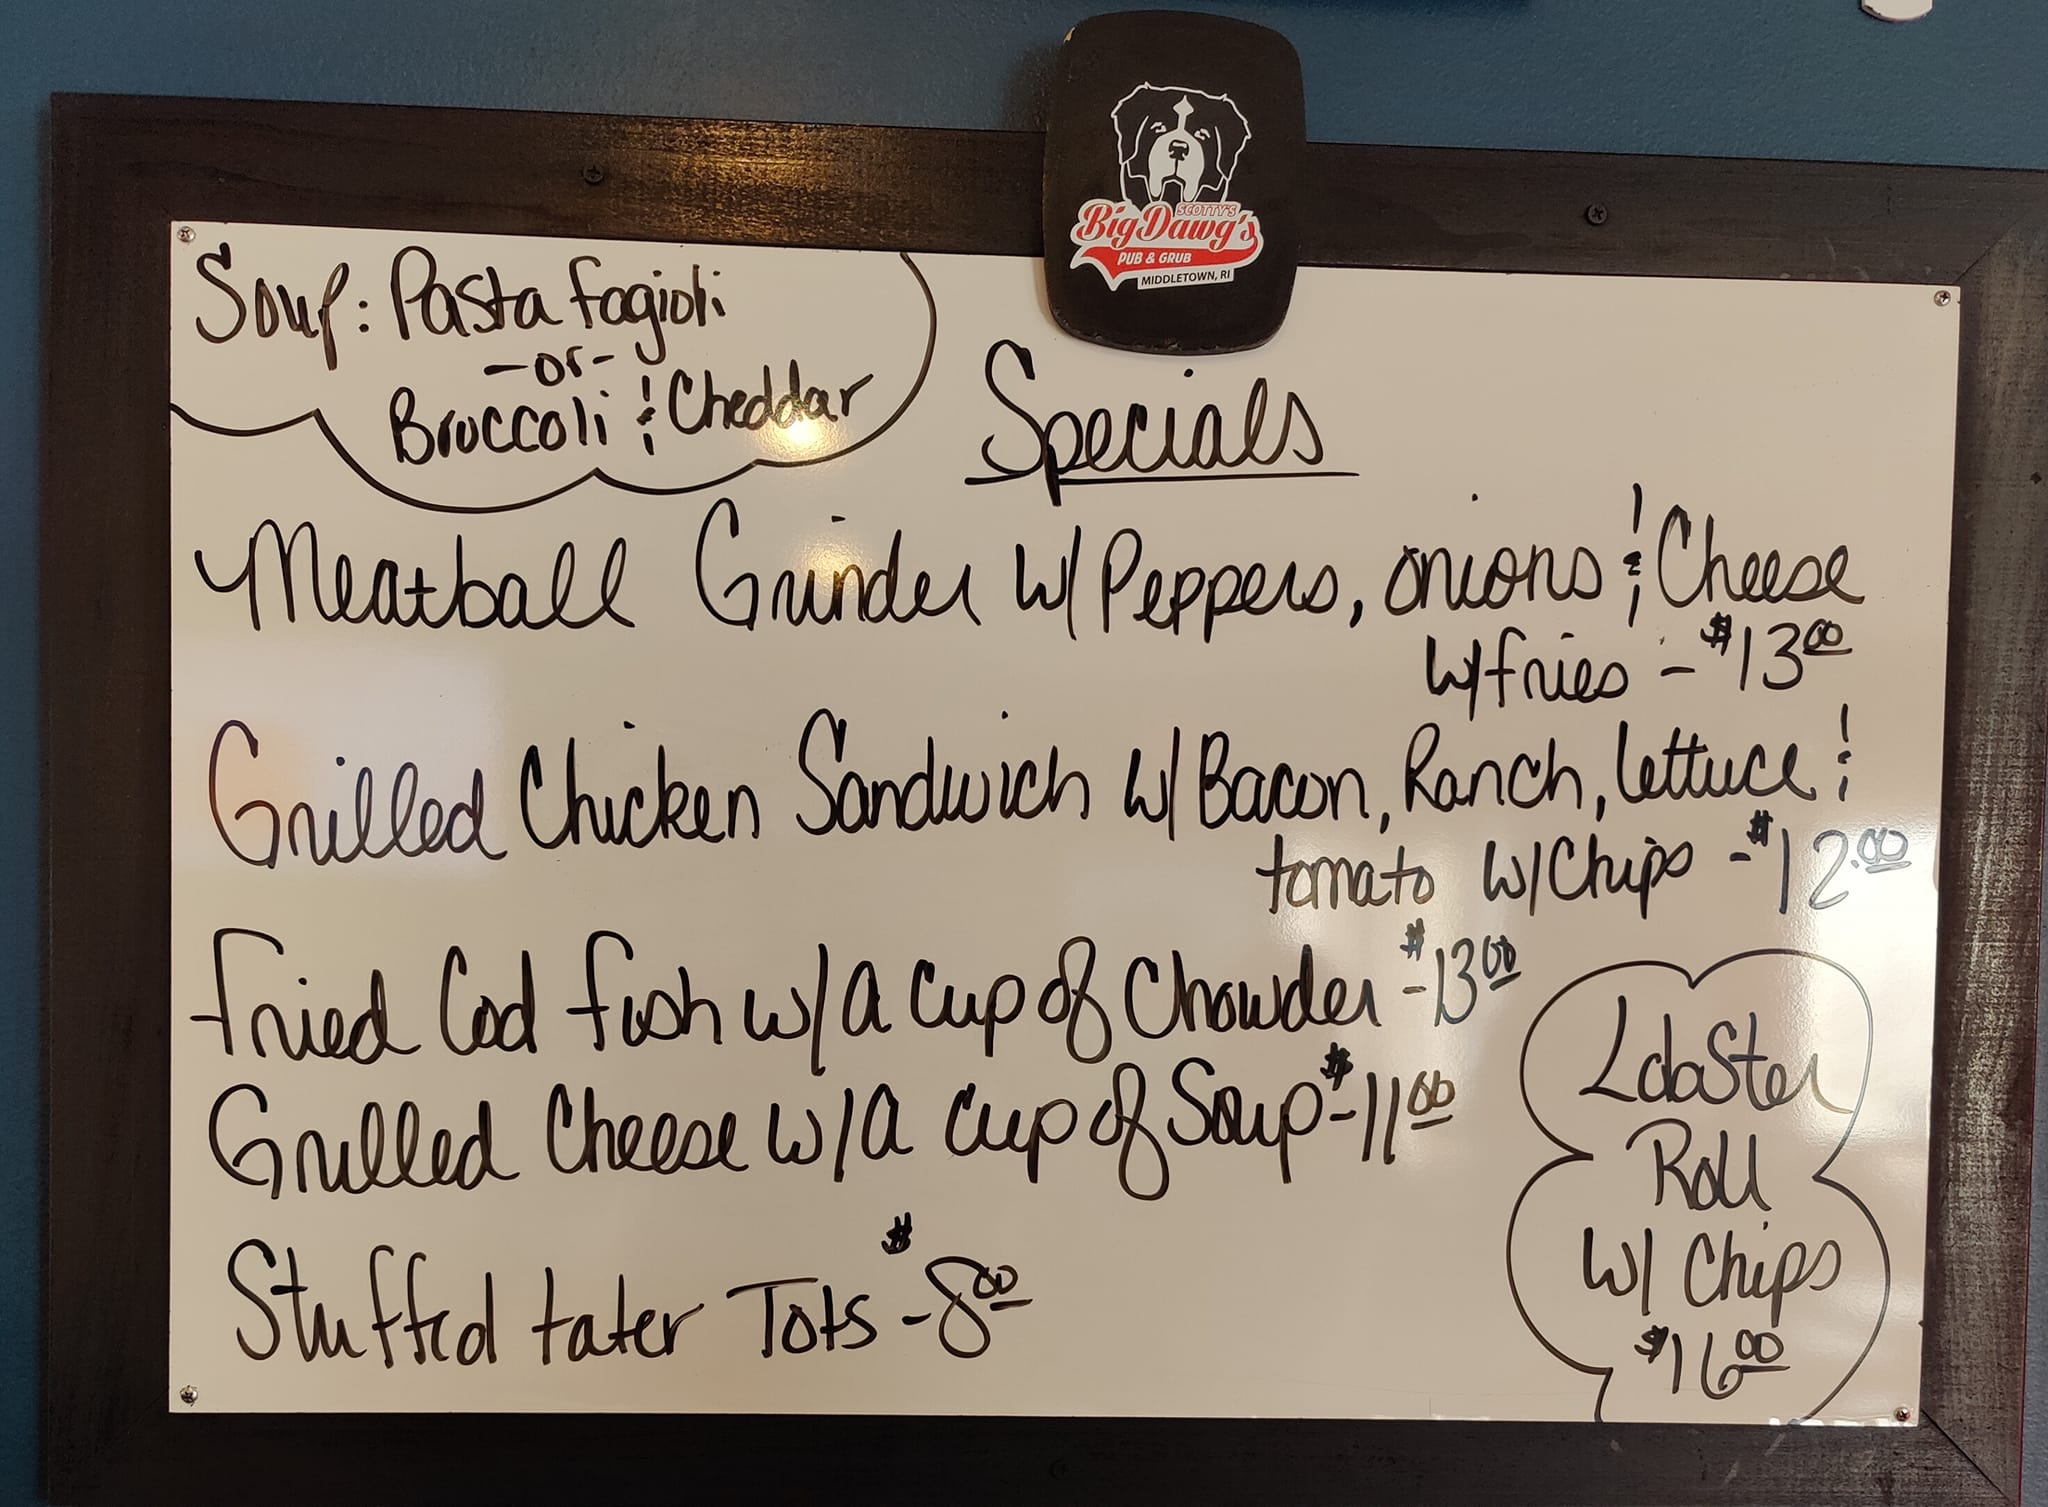 SCOTTY'S
Big Dawg's
PUB & GRUB
MIDDLETOWN, RI
Soup: Pasta fagioli
-or-
Broccoli & Cheddar
Specials
Meatball Grinder w/ Peppers, onions & Cheese
w/fries - $13.00
Grilled Chicken Sandwich w/ Bacon, Ranch, lettuce &
tomato w/Chips - $12.00
Fried Cod fish w/ a cup of Chowder - $13.00
Grilled Cheese w/ a cup of Soup - $11.00
Stuffed tater Tots - $8.00
Lobster
Roll
w/ Chips
$16.00